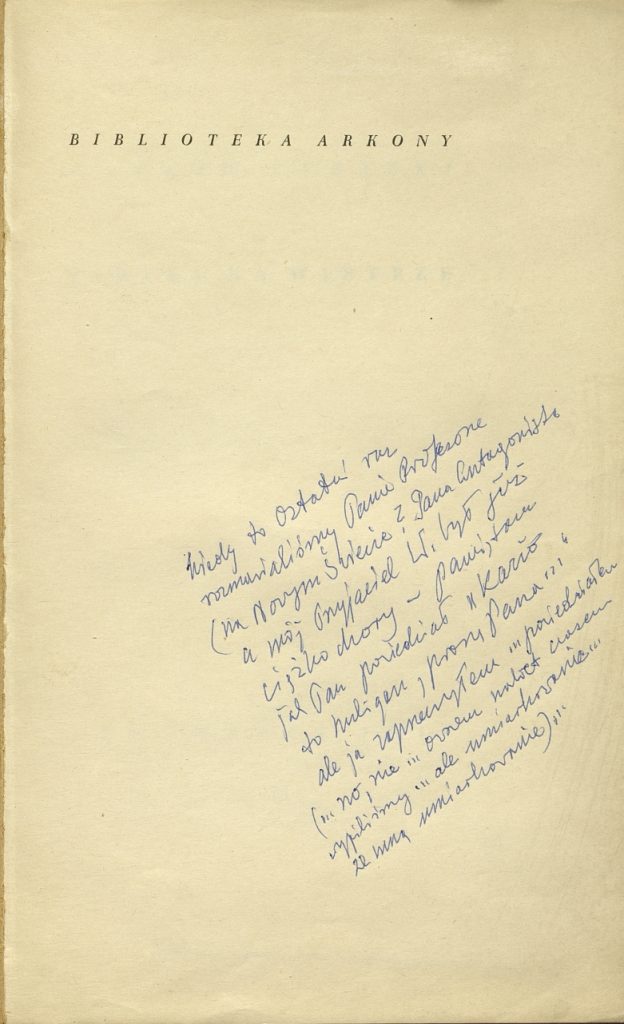 BIBLIOTEKA ARKONY
kiedy to ostatni raz
rozmawialiśmy Panie Profesorze
(na Nowym Świecie? Pana Antagonista
a mój Przyjaciel W. był już
ciężko chory – pamiętam
jak Pan powiedział "Karol
to huligan, proszę Pana..."
ale ja zaprzeczyłem ... powiedziałem
(... no, nie ... owszem nawet czasem
wypiliśmy ... ale umiarkowanie ...
ze mną umiarkowanie) ...